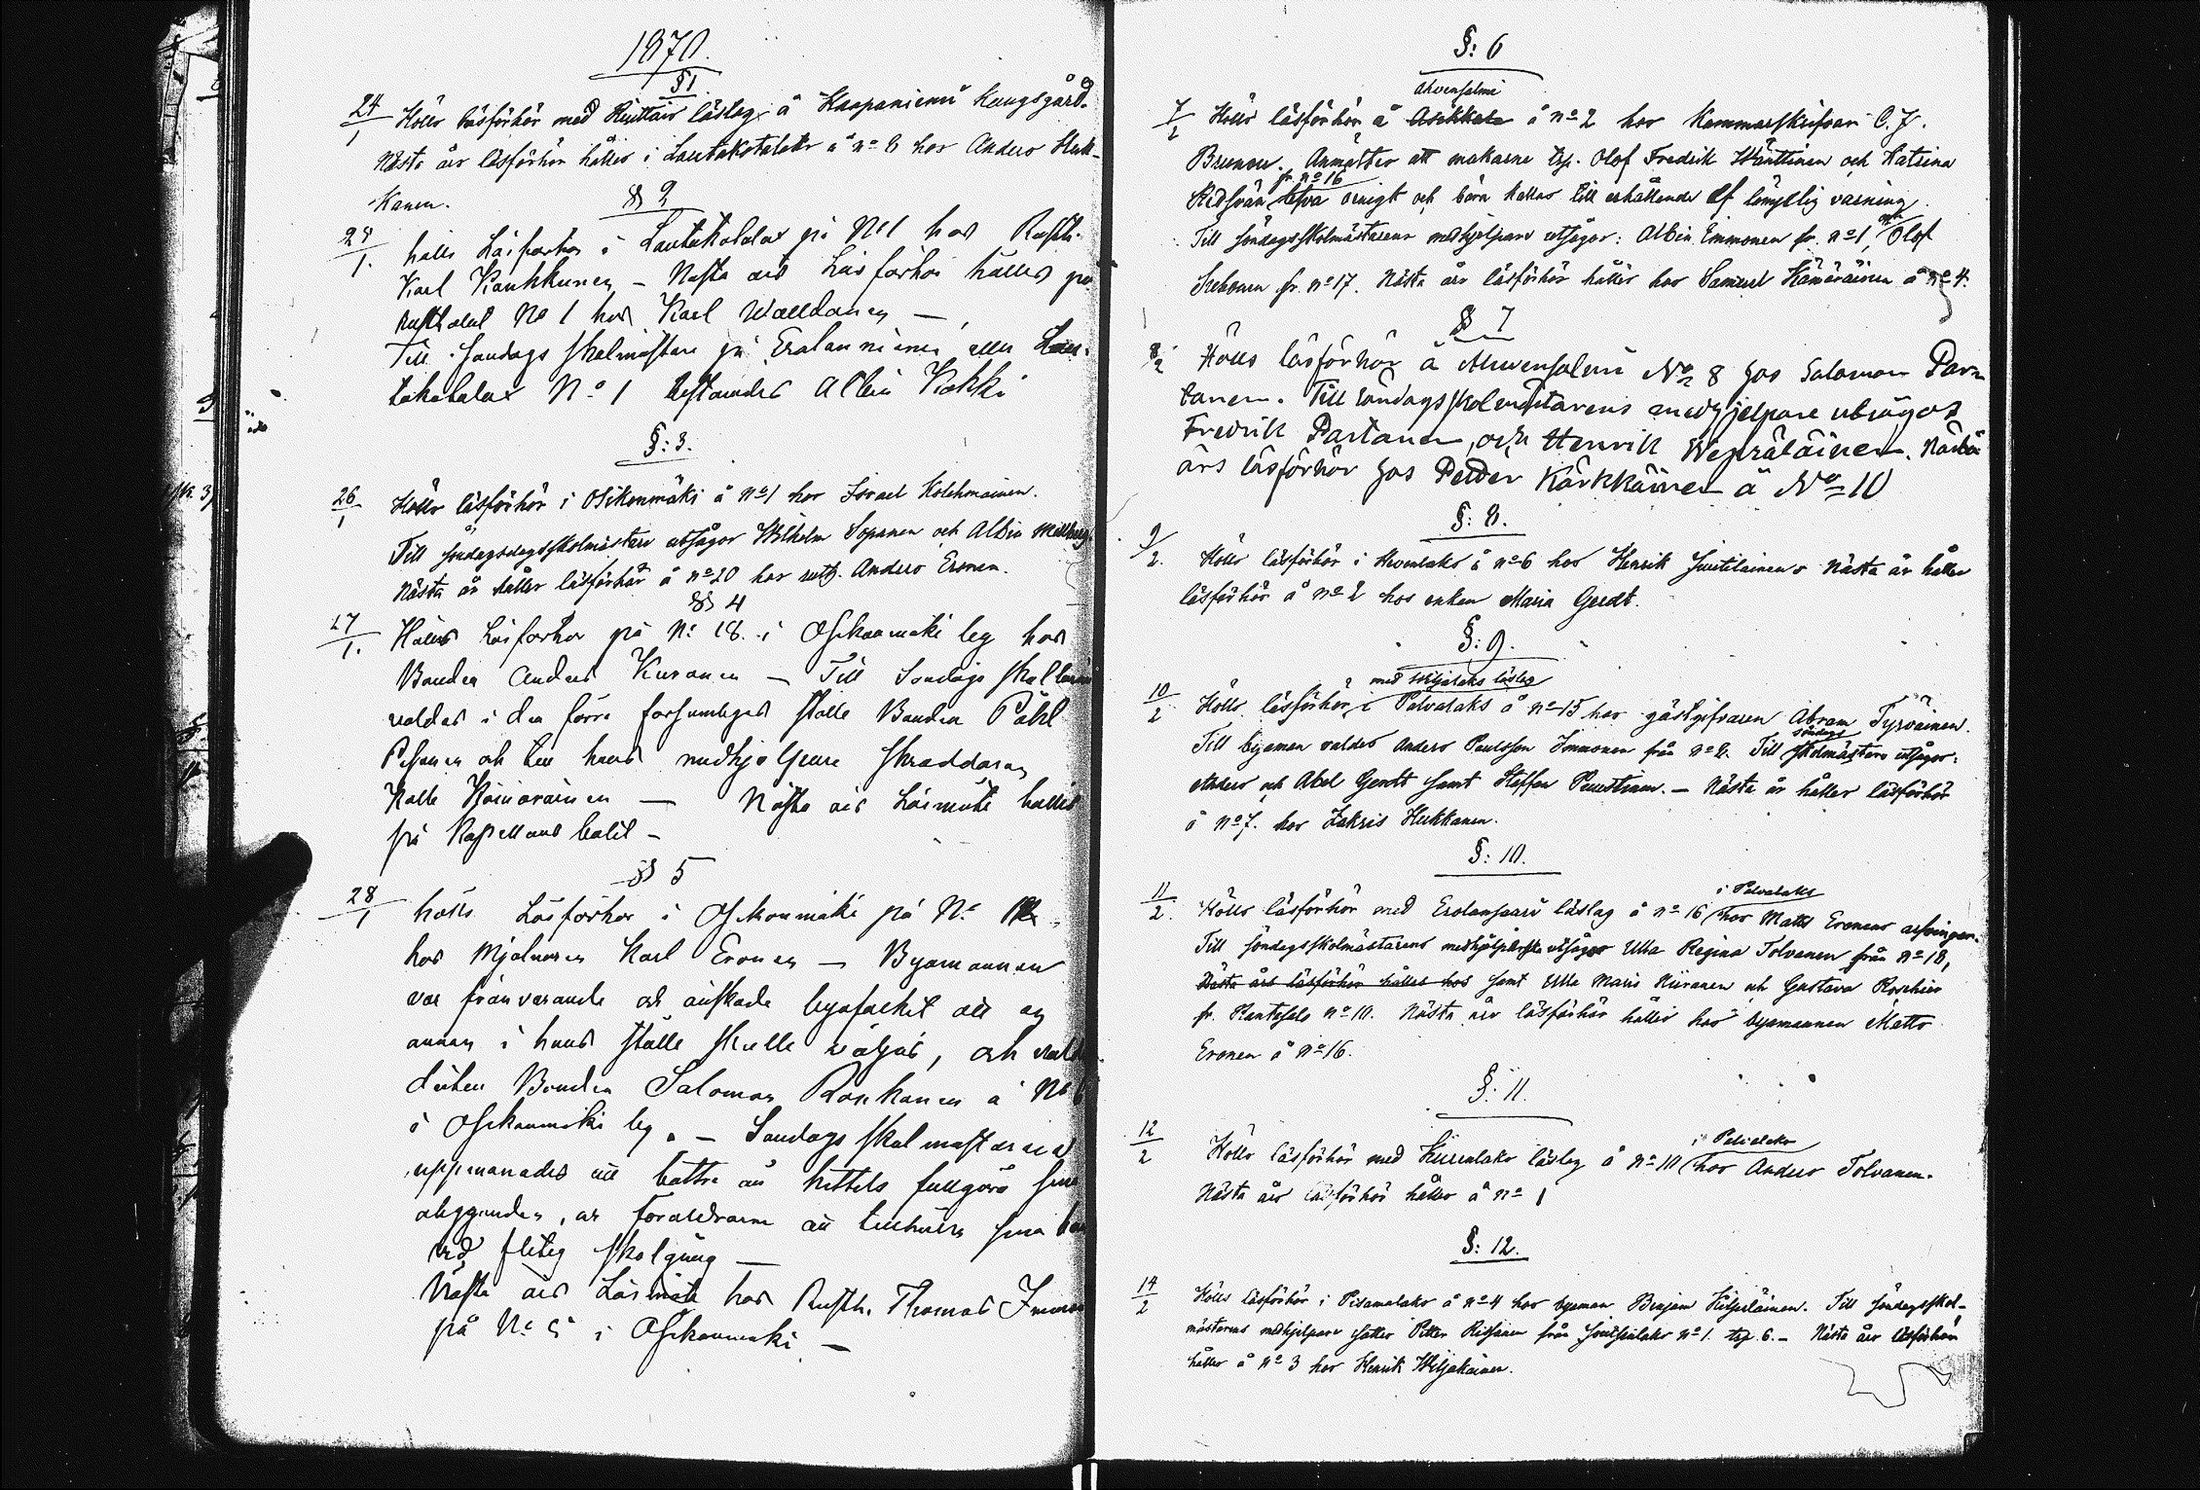 1870.
§ 1
24/1 Hölls läsförhör med Riuttais läslag å Haapaniemi Kungsgård.
Nästa års läsförhör hålles i Lautakotalaks å No 6 hos Anders Huk-
kanen.
§ 2
hölls Läsförhör i Lautakotalax på No 1 hos Rusth.
Karl Kaukkunen – Nästa års Läsförhör hålles på
rusthålet No 1 hos Karl Walldanen –
Till Söndags skolmästare på Eralanniemi eller Lau-
takotalax No 1 bestämdes Albin Kokki
§: 3.
26/1 Hölls läsförhör i Osikonmäki å No 1 hos Israel Kolehmainen.
Till söndagsdagsskolmästare utsågos Wilhelm Sopanen och Albin
Nästa år hålles läsförhör å No 20 hos rusth. Anders Eronen.
§ 4
27/1. Hölls Läsförhör på No 18. i Osikonmäki by hos
Bonden Anders Kuronen – Till Söndags
valdes i den förre försumliges ställe Bonden Påhl
Pesonen och till hans medhjelpare Skräddaren
Kalle Hämäräinen — Nästa års Läsmöte hålles
på Kapellans bolet –
§ 5
28/1 hölls Läsförhör i Osikonmäki på No
hos Mjölnaren Karl Eronen – Byamannen
var frånvarande och önskade byafolket att en
annan i hans ställe skulle väljas, och
dertill Bonden Salomon Ronkanen å No 6
i Osikonmäki by. – Söndags skolmästarena
uppmanades att bättre än hittils fullgöra sina
åligganden, och Föräldrarne att tillhålla sina
vid flitig skolgång —
Nästa års Läsmöte hos Rusth. Thomas
på No 5 i Osikonmäki –
§: 6
7/2 Hölls läsförhör å Asikkala Ahvensalmi å No 2 hos Kammarskrifvare C. J.
Brunou. Anmältes att makarne trp. Olof Fredrik Wänttinen och Katrina
fr. No 16 lefva oenigt och böra kallas till erhållande af lämplig varning.
Till söndagsskolmästarens medhjelpare utsågos: Albin Immonen fr. No 1, och Olof
fr. No 17. Nästa års läsförhör hålles hos Samuel Hämäräinen å No 4.
§ 7
8/2 Hölls läsförhör å Ahvensalmi No 8 hos Salomon Par-
tanen. Till söndagsskolmästarens medhjelpare utsågos
Fredrik Partanen, och Henrik Wepsäläinen. Nästa
års läsförhör hos Petter Kärkkäinen å No 10
§: 8.
9/2. Hölls läsförhör i å No 6 hos Henrik Juutilainen. Nästa år hålles
läsförhör å No 2 hos enkan Maria Gerdt.
§: 9.
10/2 Hölls läsförhör med Wiljalaks läslag i Palvalaks å No 15 hos gästgifvaren Abram Tyrväinen.
Till byaman valdes Anders Paulsson Immonen från No 2. Till söndagsskolmästare utsågos:
Anders och Abel Gerdt samt Staffan – Nästa år hålles läsförhör
å No 7. hos Zakris Hukkanen.
§: 10.
11/2. Hölls läsförhör med Erolansaari läslag å No 16 i Palvalaks hos Matts Eronens arfvingar.
Till söndagsskolmästarens medhjelpare utsågos Ulla Regina Tolvanen från No 18,
Nästa års läsförhör hålles hos samt Ulla Maria Niiranen och Gustava Roschier
fr. Rantasalo No 10. Nästa års läsförhör hålles hos byamannen Matts
Eronen å No 16.
§: 11.
12/2 Hölls läsförhör med läslag å No 10 i Palvalaks hos Anders Tolvanen.
Nästa års läsförhör hålles å No 1
§: 12.
14/2 Hölls läsförhör i Pisamalaks å No 4 hos byaman Benjam Hilpiläinen. Till söndagsskol-
mästarens medhjelpare sattes Petter från No 1. trp. 6. – Nästa års läsförhör
hålles å No 3 hos Henrik Wiljakainen.